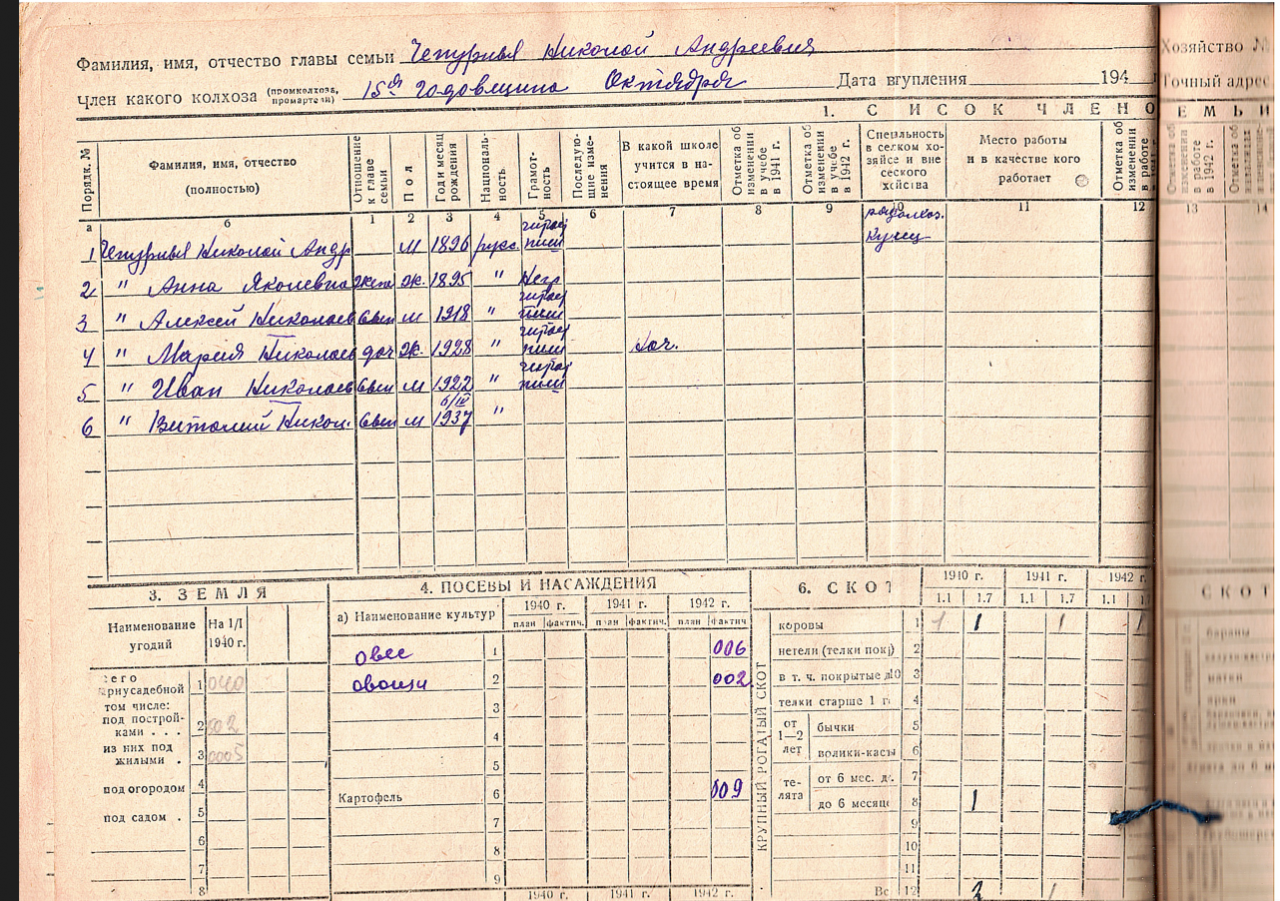 Фамилия, имя, отчество главы семьи Чепурный Николай Андреевич
Член какого колхоза (промколхоза, промартели) 15ая годовщина Октября Дата вгупления 194
Хозяйство №
Точный адрес
1. СПИСОК ЧЛЕНО
ЕМЬИ
Порядк. № Фамилия, имя, отчество (полностью) Отношение к главе семьи Пол Год и месяц рождения Националь-ность Грамот-ность Последую-щие изме-нения В какой школе учится в на-стоящее время Отметка об изменении в учебе в 1941 г. Отметка об изменении в учебе в 1942 г. Специальность в селком хо-зяйсе и вне сеского хэйства Место работы и в качестве кого работает Отметка об изменении в работе
Отметка об изменении в работе в 1942 г.
а б 1 2 3 4 5 6 7 8 9 10 11 12 13 14
1 Чепурный Николай Андр м 1896 русс. читает пиш Кузнец
2 " Анна Яковлевна жена ж. 1895 " Негр
3 " Алексей Николаев сын м 1918 " читает пиш
4 " Мария Николаев доч ж. 1928 " читает пиш нач.
5 " Иван Николаев сын м 1922 " читает пиш
6 " Виталий Никол. сын м 6/IV 1937 "
3. ЗЕМЛЯ
Наименование угодий На 1/I 1940 г.
сего
рнусадебной 1 040
том числе:
под построй-
ками . . . 2 002
из них под
жилыми . 3 0005
под огородом 4
под садом . 5
6
7
8
4. ПОСЕВЫ И НАСАЖДЕНИЯ
а) Наименование культур 1940 г. 1941 г. 1942 г.
план фактич. план фактич. план фактич
овес 1 006
овощи 2 002
3
4
5
Картофель 6 009
7
8
9
1940 г. 1941 г. 1942 г.
6. СКОТ
1940 г. 1941 г. 1942 г.
1.1 1.7 1.1 1.7 1.1
КРУПНЫЙ РОГАТЫЙ СКОТ
коровы 1 1 1 1 1
нетели (телки пок) 2
в т. ч. покрытые д10 3
телки старше 1 г. 4
от 1—2 лет бычки 5
волики-каст 6
те-лята от 6 мес. д. 7
до 6 месяце 8 1
9
10
11
Вс 12 2 1
СКОТ
бараны
матки
ярки